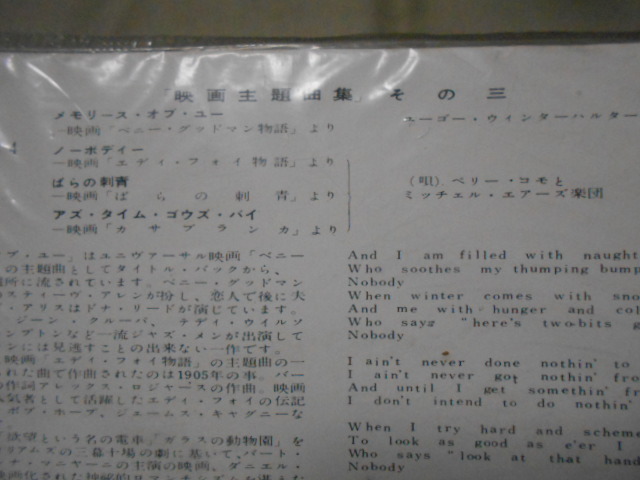 「映画主題曲集」その三
メモリース・オブ・ユー
—映画「ベニー・グッドマン物語」より
ユーゴー・ウィンターハルター
ノーボディー
—映画「エディ・フォイ物語」より
ばらの刺青
—映画「ばらの刺青」より
アズ・タイム・ゴウズ・バイ
—映画「カサブランカ」より
(唄) ペリー・コモと
ミッチェル・エアーズ楽団
ブ・ユー」はユニヴァーサル映画「ベニー
の主題曲としてタイトル・バックから、
所に流されています。ベニー・グッドマン
スティーヴ・アレンが扮し、恋人で後に夫
・アリスはドナ・リードが演じています。
ジーン・クルーパ、テディ・ウイルソ
ンプトンなど一流ジャズ・メンが出演して
ンには見逃すことの出来ない一作です。
映画「エディ・フォイ物語」の主題曲の一
れた曲で作曲されたのは1905年の事。バー
の作詞アレックス・ロジャースの作曲。映画
気者として活躍したエディ・フォイの伝記
ボブ・ホープ、ジェームス・キャグニーな
欲望という名の電車」「ガラスの動物園」を
リアムズの三幕十場の劇に基いて、バート・
ナ・マニヤーニの主演の映画、ダニエル・
And I am filled with naught
Who soothes my thumping bump
Nobody
When winter comes with sno
And me with hunger and col
Who says "here's two-bits g
Nobody
I ain't never done nothin' to
I ain't never got nothin' from
And until I get somethin' fr
I don't intend to do nothin'
When I try hard and scheme
To look as good as e'er I
Who says "look at that hand
Nobody